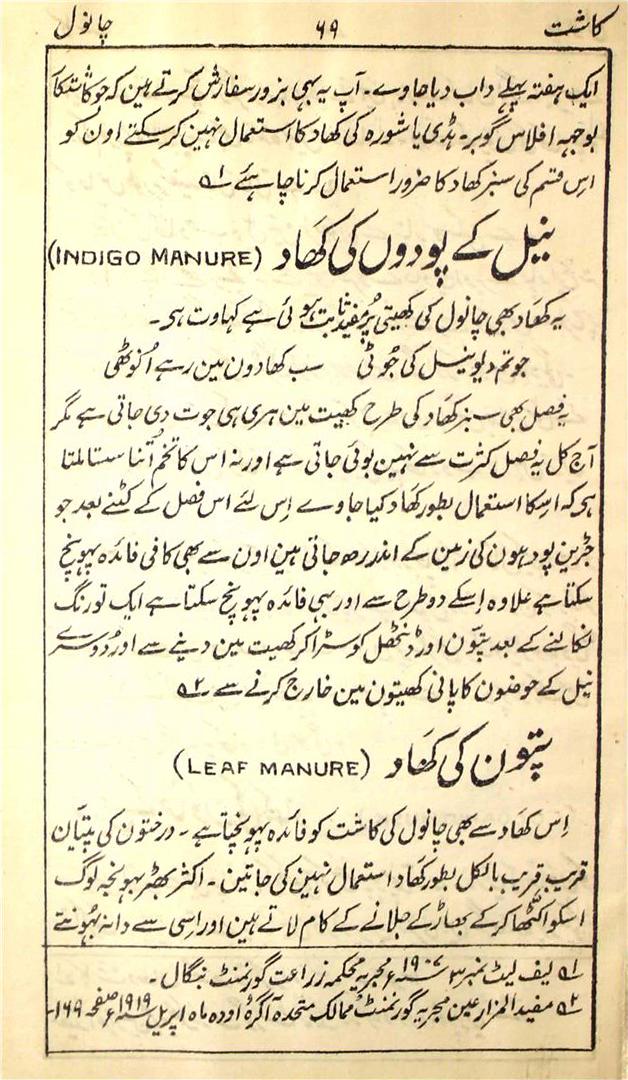 کاشت ۶۹ چانول
ایک ہفتہ پہلے داب دیا جاوے۔ آپ یہ بھی بزور سفارش کرتے ہین کہ جو کاشتکا
بوجہہ افلاس گوبر۔ ہڈی یا شورہ کی کھاد کا استعمال نہین کر سکتے اون کو
اس قسم کی سبز کھاد کا ضرور استعمال کرنا چاہئے ؎۱
نیل کے پودوں کی کھاد (INDIGO MANURE)
یہ کھاد بھی چانول کی کھیتی پر مفید ثابت ہوئی ہے کہاوت ہی۔
جو تم دیو نیل کی جوٹی سب کھادون مین رہے انوٹھی
یہ فصل بھی سبز کھاد کی طرح کھیت مین ہری ہی جوت دی جاتی ہے مگر
آج کل یہ فصل کثرت سے نہین بوئی جاتی ہے اور نہ اس کا تخم اُتنا سستا ملتا
ہی کہ اسکا استعمال بطور کھاد کیا جاوے اِس لئے اس فصل کے کٹنے بعد جو
جڑین پودہون کی زمین کے اندر رھ جاتی ہین اون سے بھی کافی فائدہ پہونچ
سکتا ہے علاوہ اِسکے دو طرح سے اور بہی فائدہ پہونچ سکتا ہے ایک تو رنگ
نکالنے کے بعد پتّون اور ڈنٹھل کو سڑا کر کھیت مین دینے سے اور دُوسرے
نیل کے حوضون کا پانی کھیتون مین خارج کرنے سے ؎۲
پتون کی کھاد (LEAF MANURE)
اِس کھاد سے بھی چانول کی کاشت کو فائدہ پہونچتا ہے۔ درختون کی پتیّان
قریب قریب بالکل بطور کھاد استعمال نہین کی جاتین۔ اکثر بھڑبہونجہ لوگ
اسکو اکٹّھا کر کے بھاڑ کے جلانے کے کام لاتے ہین اور اِسی سے دانہ بہُونتے
؎۱ لیف لیٹ نمبر ۳ ۱۹۰۷ء مجریہ محکمہ زراعت گورنمنٹ بنگال۔
؎۲ مفید المزارعین مجریہ گورنمنٹ ممالک متحدہ آگرہ و اودہ ماہ اپریل ۱۹۱۹ء صفحہ ۱۶۹-